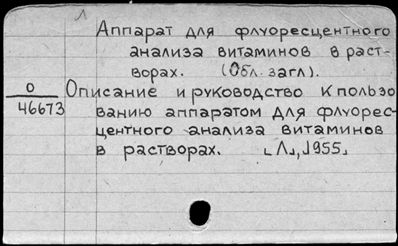 1
Аппарат для флуоресцентного
анализа витаминов в раст-
ворах. (Обл. загл).
О
46673
Описание и руководство к пользо
ванию аппаратом для флуорес-
центного анализа витаминов
в растворах. [Л.], 1955.